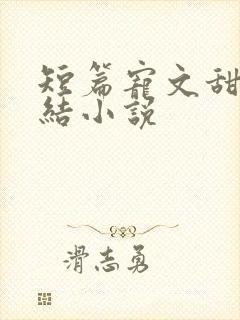 短篇寵文甜
結小說
滑志勇